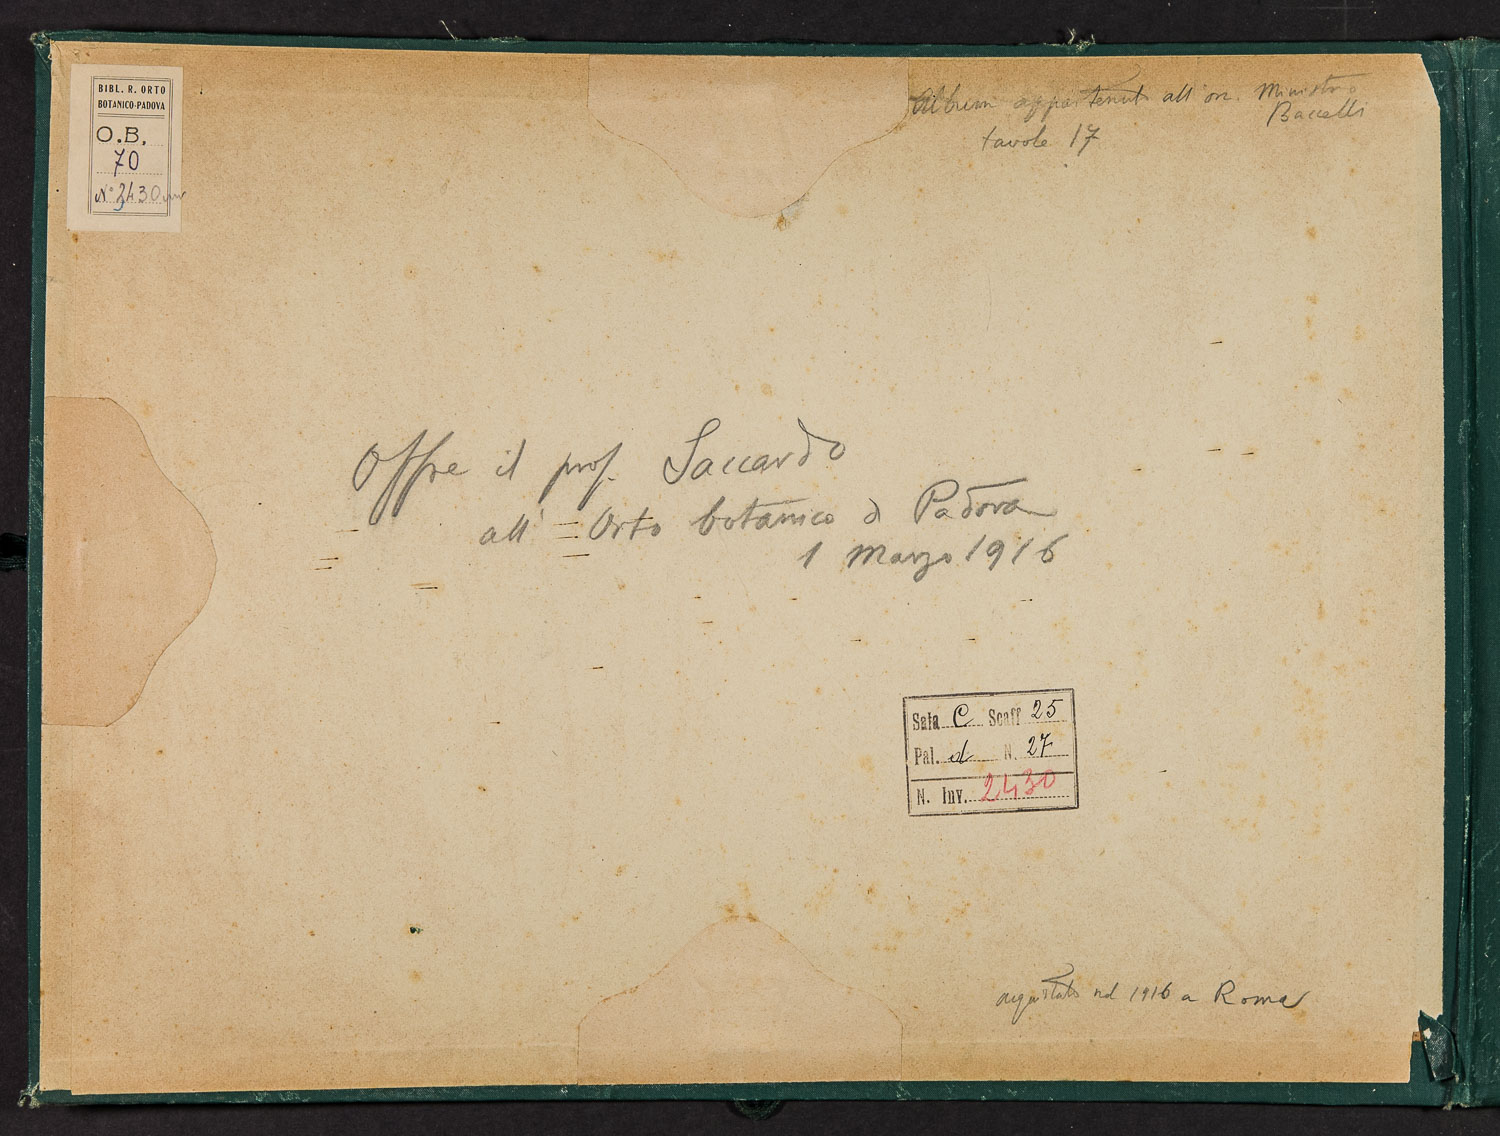 BIBL. R. ORTO
BOTANICO-PADOVA
O.B.
70
N° 2430
Album appartenuto all'on. Ministro
Baccelli
tavole 17
Offre il prof. Saccardo
all' Orto botanico di Padova
1 Marzo 1916
Sala C Scaff 25
Pal. d N. 27
N. Inv. 2430
acquistato nel 1916 a Roma